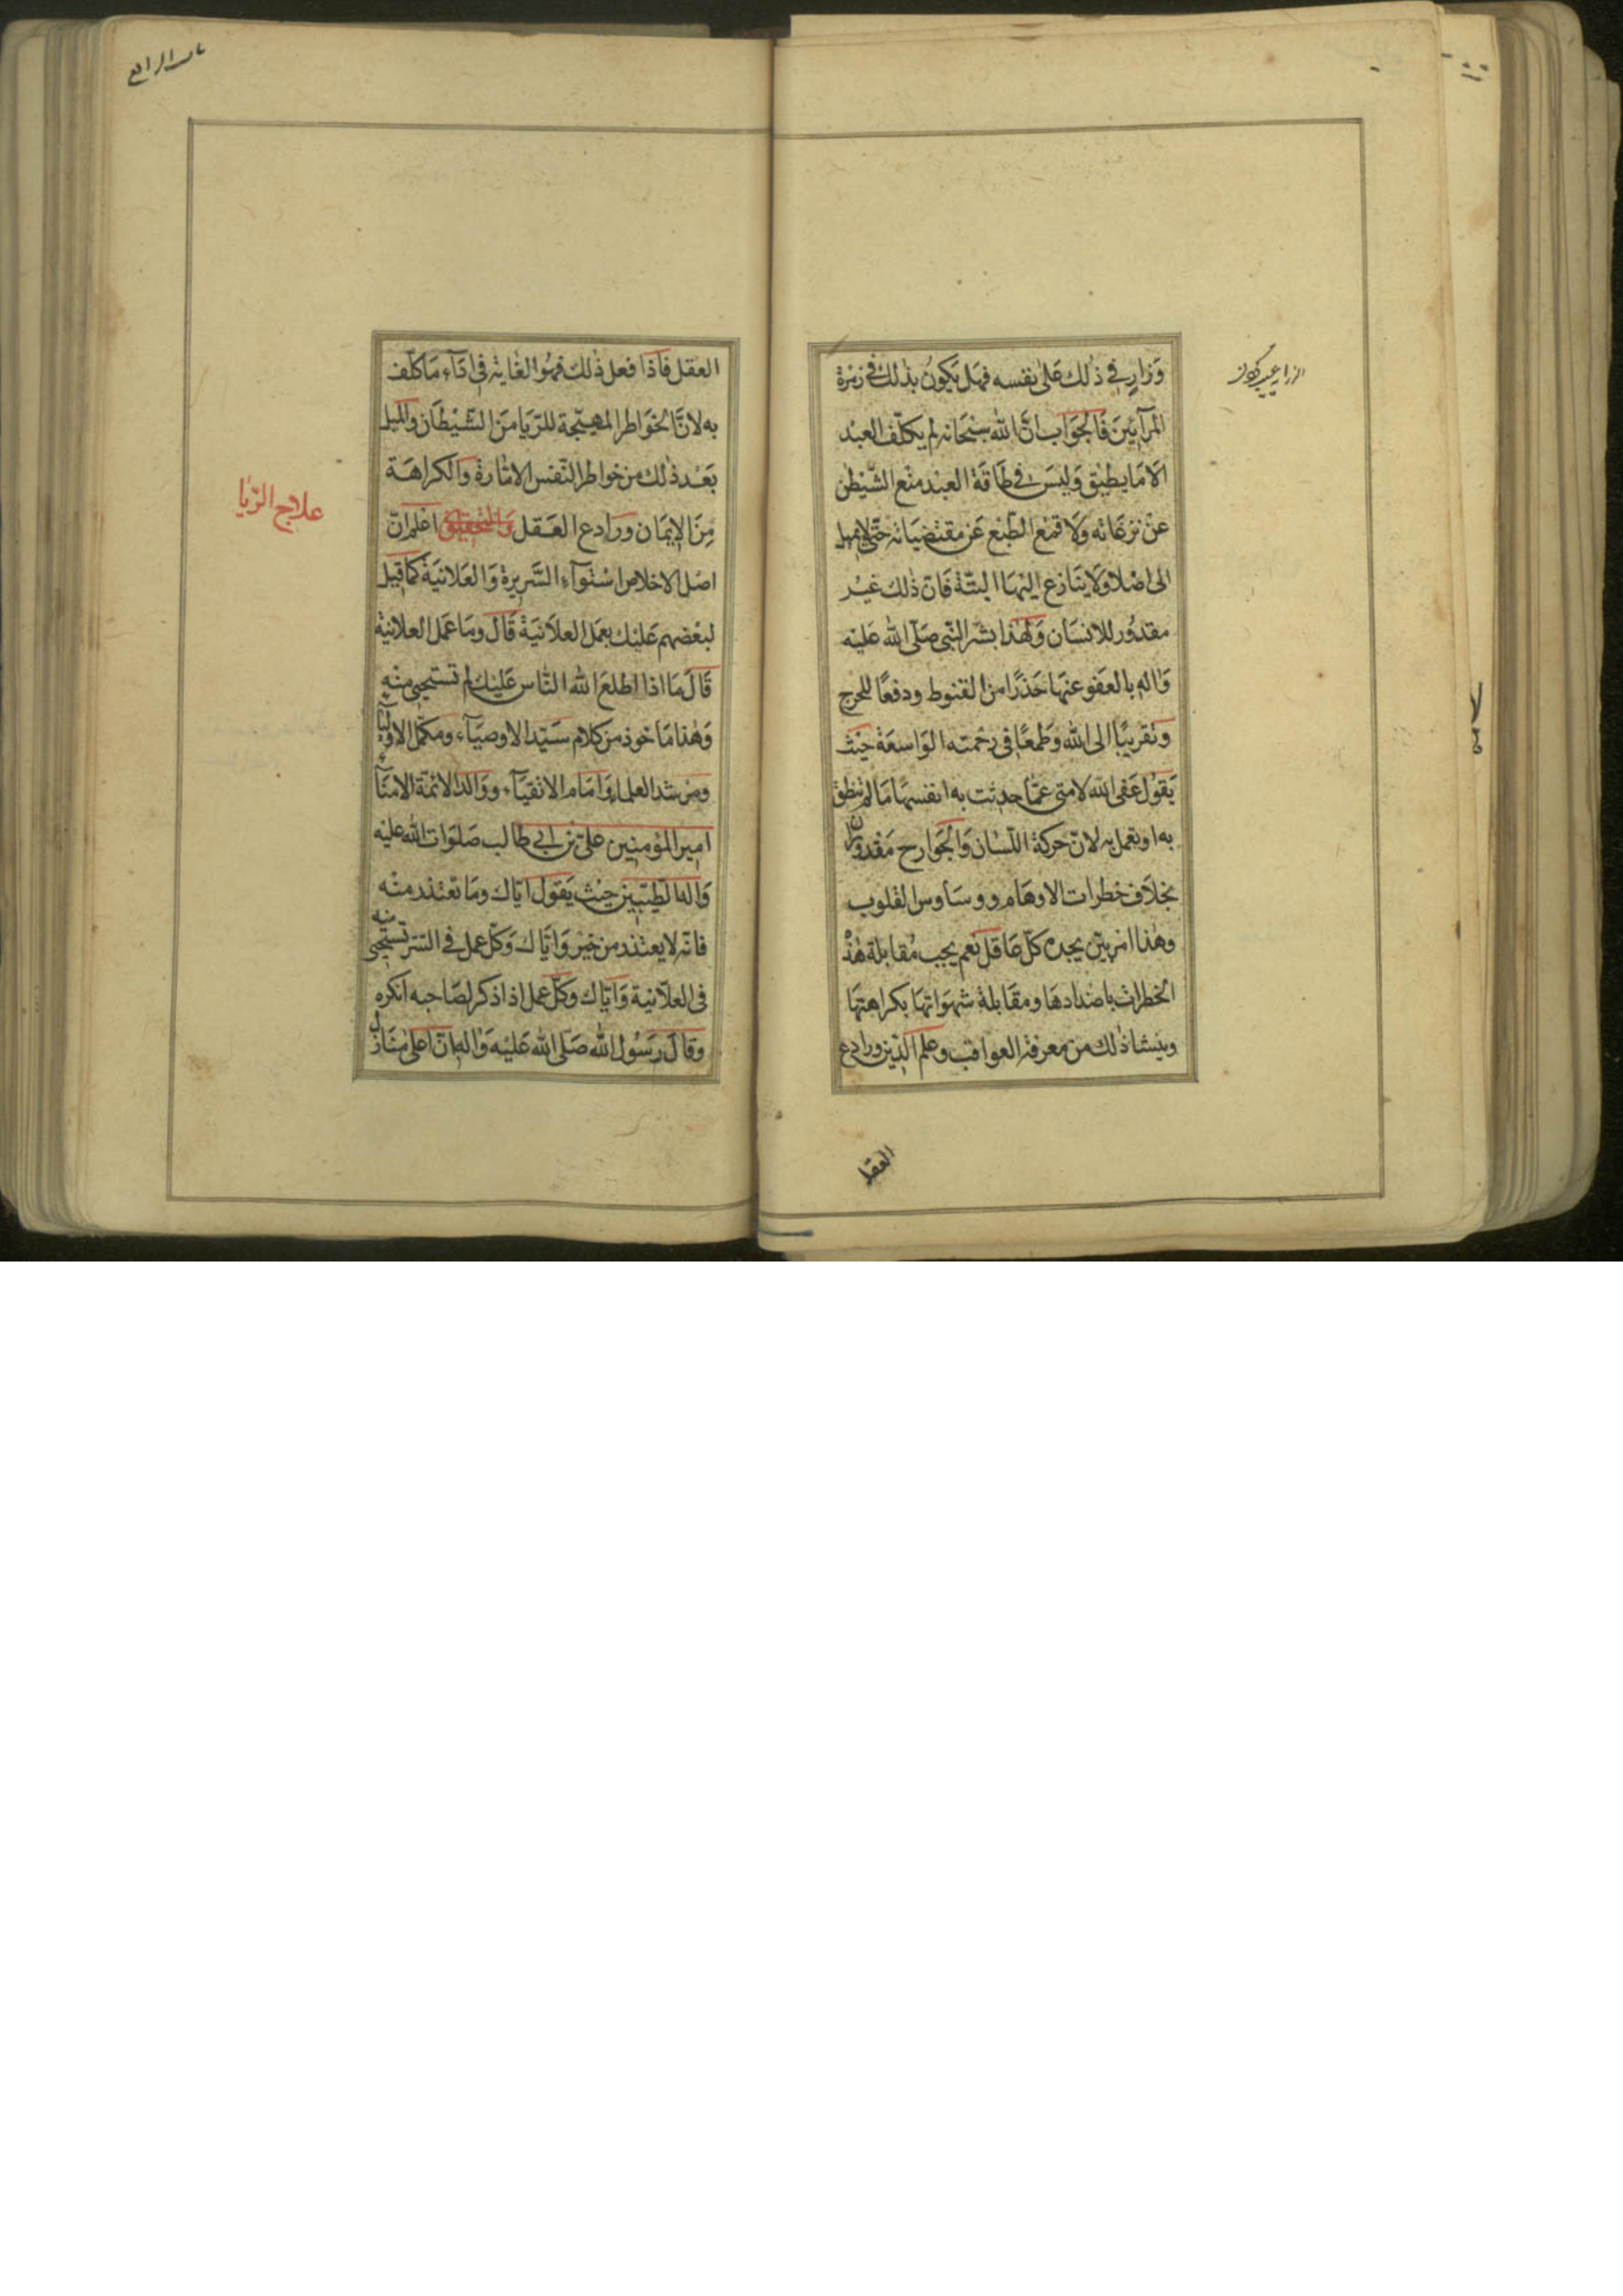 وَزارٍ في ذٰلك عَلىٰ نفسه فهَل يَكونُ بذلك في زمرة
المرآئينَ فَالجَوَاب انّ الله سبْحَانه لم يكلّف العبْد
الّا مَا يطيْق وَليسَ في طَاقَة العبْد منْع الشّيْطٰن
عنْ نزغاته وَلَا قمْع الطّبْع عَن مقتضيَاته حتّى لا يميل
الى اصْلًا وَلَا ينَازع اليْهَا البتّة فَانّ ذٰلك غيْر
مقدُور للانسَان وَلهٰذا بشّر النّبى صَلّى الله عَليْه
وَاٰله بالعَفو عنهَا حَذرًا من القنوط ودفعًا للحرج
وتقريبًا الى الله وَطَمعًا في رَحْمته الوَاسعَة حيْث
يَقوُل عَفى الله لامتى عمّا حدثت به انفسهَا مَا لم تنطق
به او تعمل به لانّ حركة اللّسَان وَالجَوارح مَقدورتان
بخلَاف خطرات الاوهَام ووسَاوس القلوب
وهٰذا امر بيّن يجده كلّ عَاقل نعم يجب مُقابلة هٰذه
الخطرات باضدادهَا ومقَابلة شهوَاتهَا بكراهتهَا
وينشا ذٰلك من معرفة العواقب وعلم الدّين ورادع
العقل
الازراء عيب كردن
العقل فَاذا فعل ذٰلك فهُو الغاية في ادَآء مَا كلّف
به لانّ الخَوَاطر المهيّجة للرّيَا منَ الشّيْطَان والميل
بَعْد ذٰلك من خواطر النّفس الامّارة وَالكراهَة
مِنَ الايمَان ورَادع العَقل وَالتّحقيق اعْلم انّ
اصْل الاخلاص اسْتوآء السَّرِيرة وَالعَلانيَة كَمَا قيل
لبعْضهم عَليْك بعَمل العلَانيَة قَالَ ومَا عَمَل العلانيَة
قَالَ مَا اذا اطلعَ الله النّاس عَليْك لم تستحيى منْه
وَهٰذا مَاخوذ من كلام سَيّد الاوصيَآء ومكمّل الاوليَآء
ومرْشد العلماء وَامَام الاتقيَآء ووَالد الائمّة الامنَآء
امير المؤمنين علىّ بْن ابي طَالب صَلَوَات الله عليْه
وَاٰله الطّيّبين حيْث يَقول ايّاك ومَا تعْتذر منْه
فانّه لا يعتذر من خيْر وَايّاك وَكلّ عمل في السّر تستحيى منه
فى العلَانية وَايّاك وَكلّ عمل اذا ذكر لصَاحبه انكره
وقَالَ رَسُول الله صَلّى الله عَليْه وَاٰله انّ اعلى مَنَازل
علاج الرّيَا